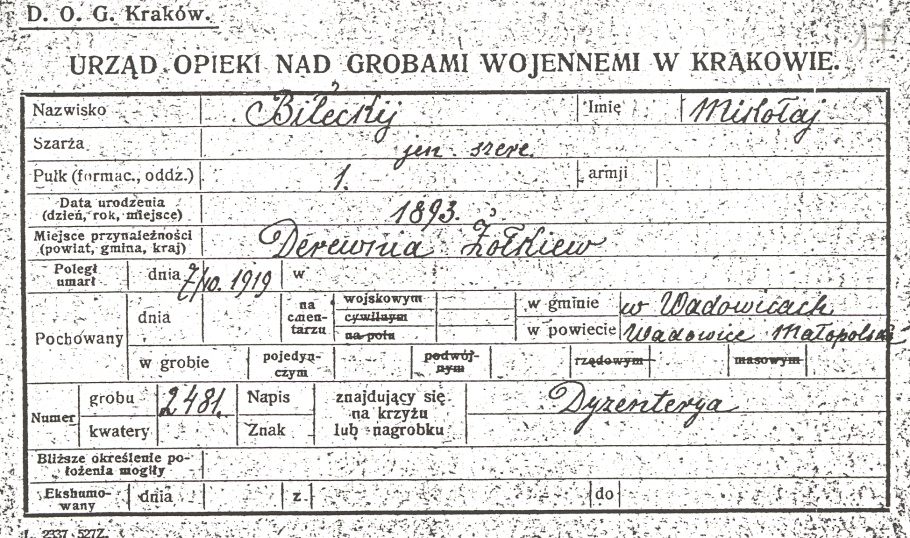 D. O. G. Kraków.
URZĄD OPIEKI NAD GROBAMI WOJENNEMI W KRAKOWIE.
Nazwisko Biłeckij Imię Mikołaj
Szarża jen. szere.
Pułk (formac., oddz.) 1. armji
Data urodzenia (dzień, rok, miejsce) 1893.
Miejsce przynależności (powiat, gmina, kraj) Derewnia Żółkiew
Poległ umarł dnia 7/10. 1919 w
Pochowany dnia na cmentarzu wojskowym cywilnym na polu w gminie w Wadowicach
w powiecie Wadowice Małopolska
w grobie pojedyn-czym podwój-nym rzędowym masowym
Numer grobu 2481. Napis znajdujący się na krzyżu lub nagrobku Dyzenterya
kwatery Znak
Bliższe określenie po-łożenia mogiły
Ekshumo-wany dnia z do
L. 2337 527Z.